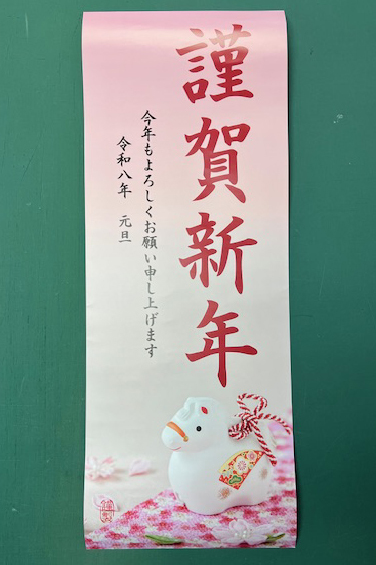 謹賀新年
今年もよろしくお願い申し上げます
令和八年 元旦
謹製